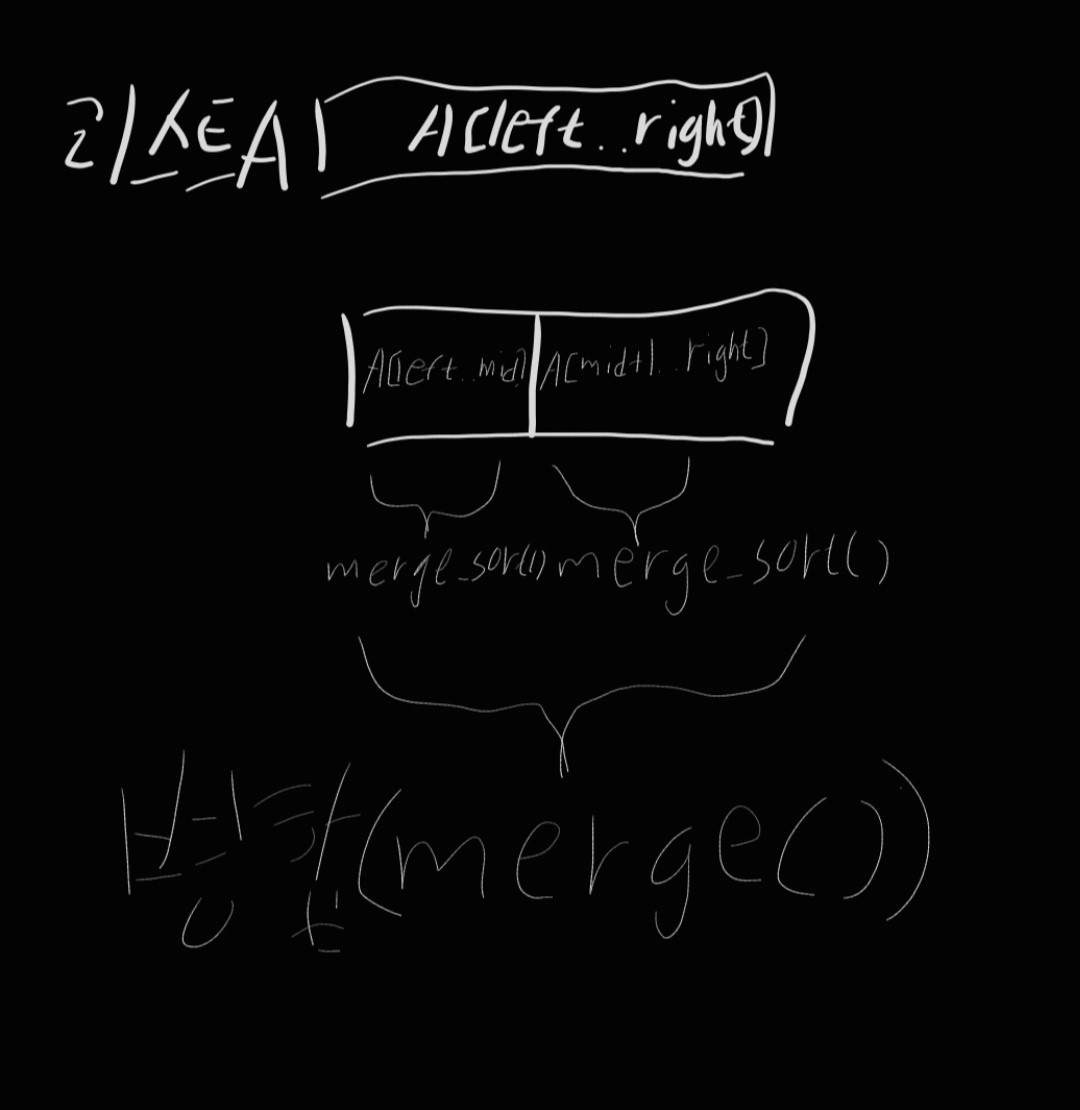 리스트A A[left..right]
A[left..mid] A[mid+1..right]
merge_sort() merge_sort()
병합(merge())